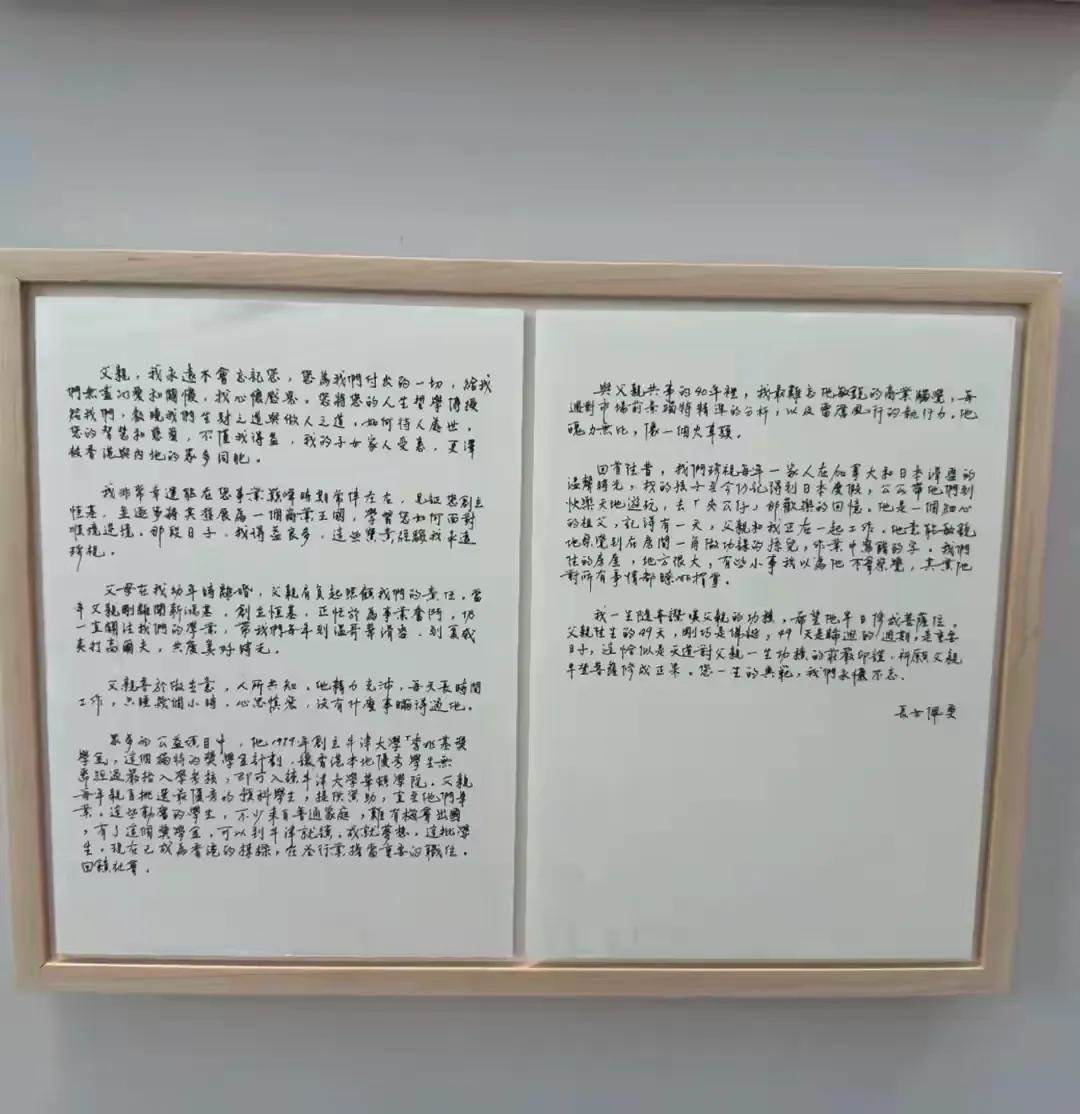 父親，我永遠不會忘記您，您為我們付出的一切，給我
們無盡的愛和關懷，我心懷感恩。您將您的人生哲學傳授
給我們，教曉我們生財之道與做人之道，如何待人處世，
您的智慧和慈愛，不僅我得益，我的子女家人受惠，更澤
被香港與內地的眾多同胞。
我非常幸運能在您事業巔峰時期常伴左右，見証您創立
恒基，並逐步將其發展為一個商業王國，學習您如何面對
順境逆境，那段日子，我得益良多，這些寶貴經驗我永遠
珍視。
父母在我幼年時離婚，父親肩負起照顧我們的責任。當
年父親剛離開新鴻基，創立恒基，正忙於為事業奮鬥，仍
一直關注我們的學業，帶我們每年到溫哥華滑雪，到夏威
夷打高爾夫，共度美好時光。
父親善於做生意，人所共知。他精力充沛，每天長時間
工作，只睡幾個小時，心思慎密，沒有什麼事瞞得過他。
眾多的公益項目中，他1979年創立牛津大學「香兆基獎
學金，這個獨特的獎學金計劃，讓香港本地優秀學生無
需經過嚴格入學考核，即可入讀牛津大學華頓學院。父親
每年親自挑選最優秀的預科學生，提供資助，直至他們畢
業。這些勤奮的學生，不少來自普通家庭，難有機會出國
，有了這個獎學金，可以到牛津就讀，成就夢想，這批學
生，現在已成為香港的棟樑，在各行業擔當重要的職位，
回饋社會。
與父親共事的40年裡，我最難忘他敏銳的商業觸覺，每
週對市場前景獨特精準的分析，以及雷厲風行的執行力，他
魄力無比，像一個火車頭。
回首往昔，我們珍視每年一家人在加拿大和日本滑雪的
溫馨時光，我的孩子至今仍記得到日本度假，公公帶他們到
快樂天地遊玩，去「夾公仔」那歡樂的回憶。他是一個知心
的祖父，記得有一天，父親和我正在一起工作，他竟能敏銳
地察覺到在房間一角做功課的孫兒，作業中寫錯的字。我們
住的房屋，地方很大，有些小事我以為他不會察覺，其實他
對所有事情都瞭如指掌。
我一生隨喜讚嘆父親的功德，希望他早日修成菩薩位。
父親往生的49天，剛巧是佛誕，49天是輪迴的週期，是重要
日子，這恰似是天道對父親一生功德的莊嚴印證，祈願父親
早登菩薩修成正果。您一生的典範，我們永懷不忘。
長女佩雯